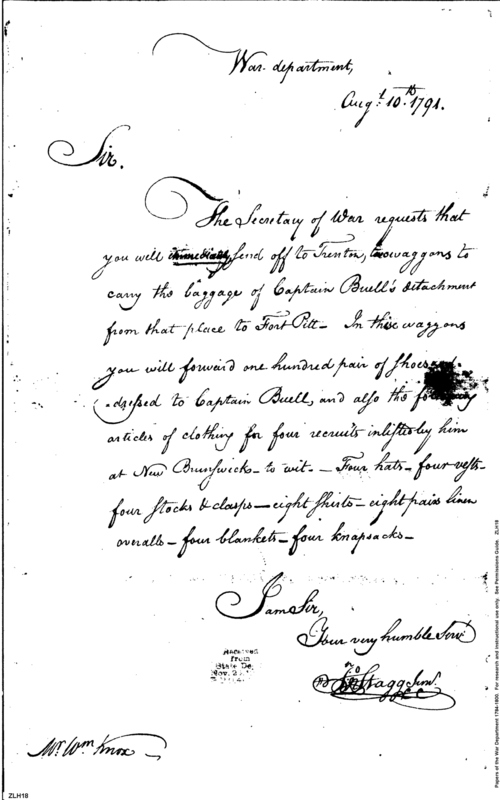 War department,
Augt. 10th. 1791.
Sir.
The Secretary of War requests that
you will immediately send off to Trenton, two waggons to
carry the baggage of Captain Buell's detachment
from that place to Fort Pitt – In these waggons
you will forward one hundred pair of shoes ad-
-dressed to Captain Buell, and also the following
articles of clothing for four recruits inlisted by him
at New Brunswick – to wit. – Four hats – four vests –
four stocks & clasps – eight shirts – eight pairs linen
overalls – four blankets – four knapsacks –
I am Sir,
Your very humble Servt.
Jno Stagg Junr.
Received
from
State De
Nov. 2
Mr. Wm. Knox
ZLH18
Papers of the War Department 1784-1800. For research and instructional use only. See Permissions Guide. ZLH18